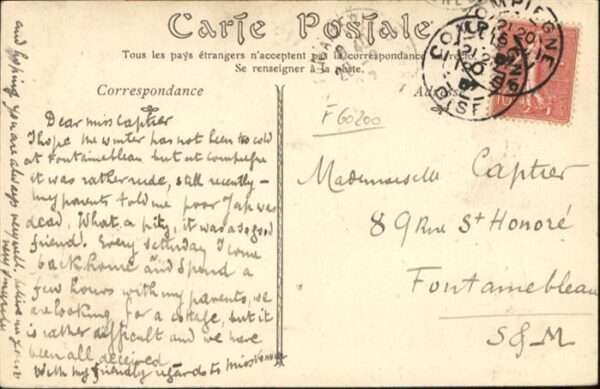 Carte Postale
Tous les pays étrangers n'acceptent pas la correspondance au recto.
Se renseigner à la poste.
Correspondance
Adresse
COMPIEGNE
OISE
F60200
Dear miss Captier
I hope the winter has not been to cold
at Fontainebleau but at compiegne
it was rather rude, still recently -
my parents told me poor Jap was
dead. What a pity, it was so good
friend. Every saturday I come
back home and spend a
few hours with my parents, we
are looking for a cotege, but it
is rather difficult and we have
been all deceived -
With my friendly regards to miss
and hoping you are always very well,
Mademoiselle Captier
89 Rue St Honoré
Fontainebleau
S&M